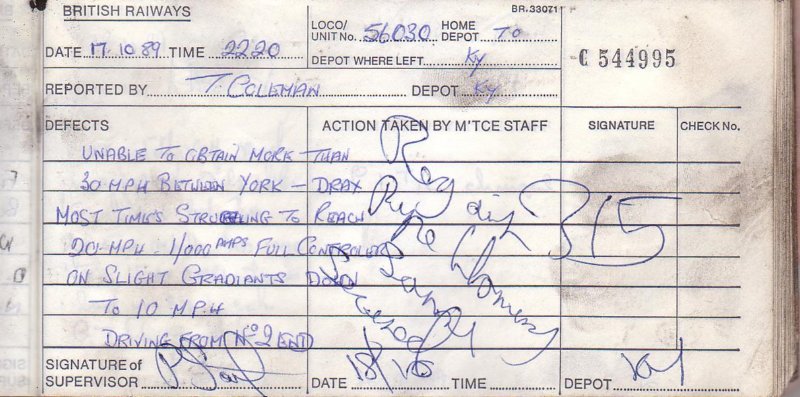 BRITISH RAILWAYS
BR.33071
DATE 17.10.89 TIME 2220
LOCO/ UNIT No. 56030 HOME DEPOT TO
DEPOT WHERE LEFT Ky
C 544995
REPORTED BY T. COLEMAN DEPOT Ky
DEFECTS ACTION TAKEN BY M'TCE STAFF SIGNATURE CHECK No.
UNABLE TO OBTAIN MORE THAN
30 MPH BETWEEN YORK - DRAX
MOST TIMES STRUGGLING TO REACH
20 MPH. 1/000 AMPS FULL CONTROLER
ON SLIGHT GRADIANTS DOWN
TO 10 M.P.H
DRIVING FROM (No 2 END)
Reg
315
SIGNATURE of SUPERVISOR DATE 18/10 TIME DEPOT Ky